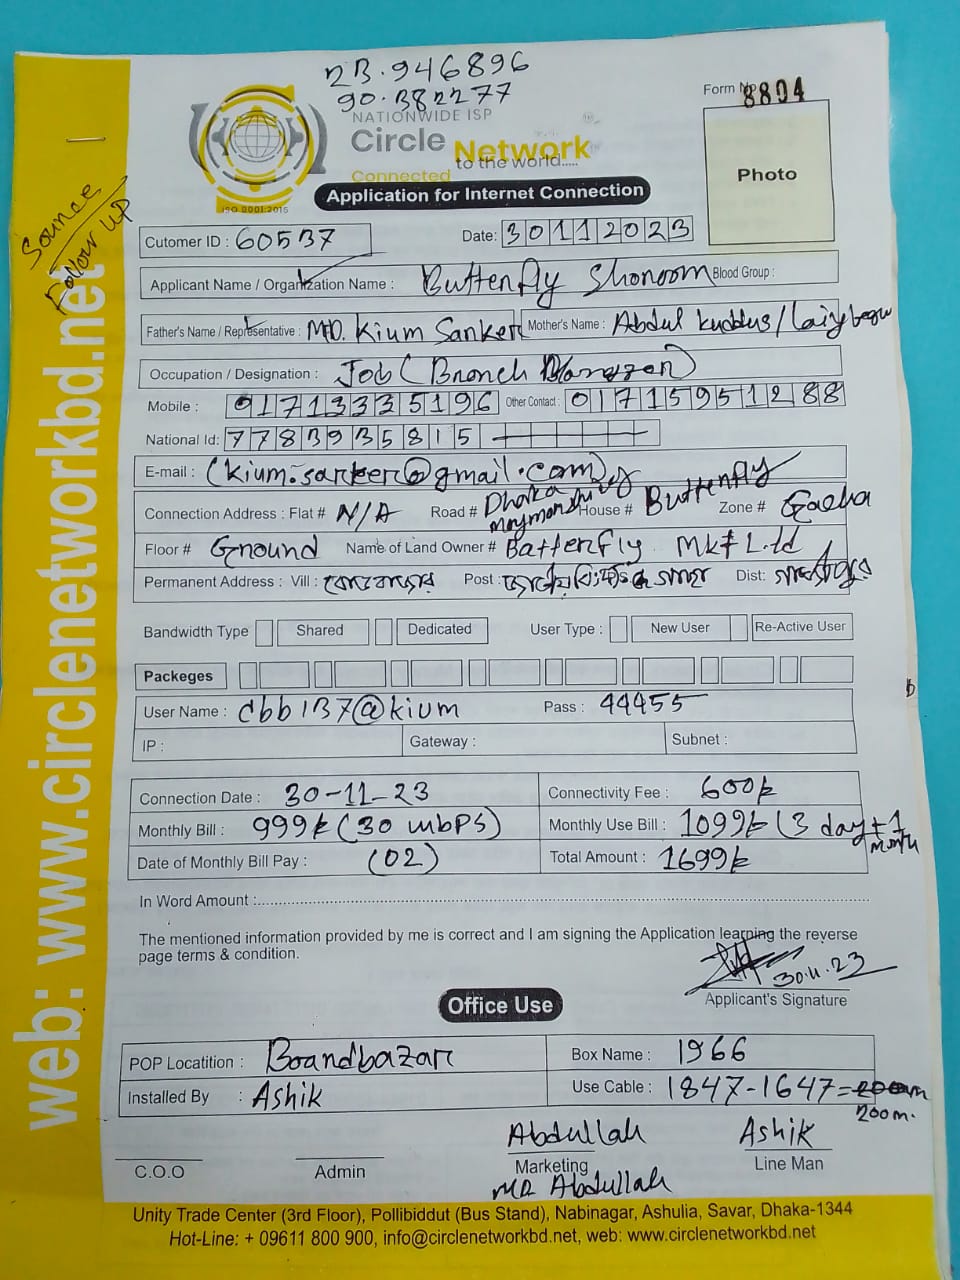 23.946896
90.382277
NATIONWIDE ISP
Circle Network
Connected to the world.....
ISO 9001:2015
Form No 8804
Photo
Application for Internet Connection
Source
Follow UP
Cutomer ID : 60537
Date: 30112023
Applicant Name / Organization Name : Butterfly Showroom Blood Group :
Father's Name / Representative : MD. Kium Sarker Mother's Name : Abdul kuddus/Laily begum
Occupation / Designation : Job (Branch Manager)
Mobile : 01713335196 Other Contact : 01715951288
National Id: 7783935815
E-mail : (kium.sarker@gmail.com)
Connection Address : Flat # N/A Road # Dhaka House # Butterfly Zone # Gacha
Floor # Ground Name of Land Owner # Batterfly Mkt L.td
Permanent Address : Vill : Post : Dist:
Bandwidth Type Shared Dedicated User Type : New User Re-Active User
Packeges
User Name : cbb137@kium Pass : 44455
IP : Gateway : Subnet :
Connection Date : 30-11-23 Connectivity Fee : 600k
Monthly Bill : 999k (30 mbps) Monthly Use Bill : 1099k (3 day + 1 month
Date of Monthly Bill Pay : (02) Total Amount : 1699k
In Word Amount :
The mentioned information provided by me is correct and I am signing the Application learning the reverse
page terms & condition.
30.11.23
Applicant's Signature
Office Use
POP Locatition : Boardbazar Box Name : 1966
Installed By : Ashik Use Cable : 1847-1647=200m
200m.
Abdullah Ashik
C.O.O Admin Marketing Line Man
MD Abdullah
Unity Trade Center (3rd Floor), Pollibiddut (Bus Stand), Nabinagar, Ashulia, Savar, Dhaka-1344
Hot-Line: + 09611 800 900, info@circlenetworkbd.net, web: www.circlenetworkbd.net
web: www.circlenetworkbd.net